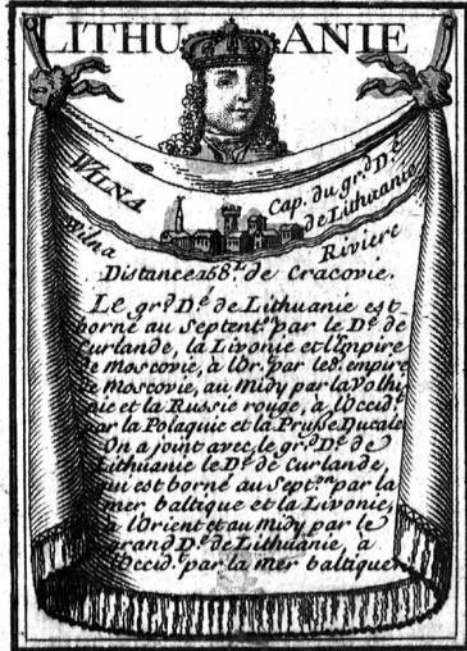 LITHUANIE
WILNA
Cap. du gr.d D.é
de Lithuanie
Wilna
Riviere
Distance 168.L de Cracovie.
Le gr.d D.é de Lithuanie est
borné au Septent.on par le D.é de
Curlande, la Livonie et l'Empire
de Moscovie, à l'Or. par led. empire
de Moscovie, au Midy par la Volhi
nie et la Russie rouge, à l'Occid.t
par la Polaquie et la Prusse Ducale
On a joint avec le gr.d D.é de
Lithuanie le D.é de Curlande,
qui est borné au Sept.on par la
mer baltique et la Livonie,
à l'Orient et au Midy par le
grand D.é de Lithuanie, à
l'Occid.t par la mer baltique